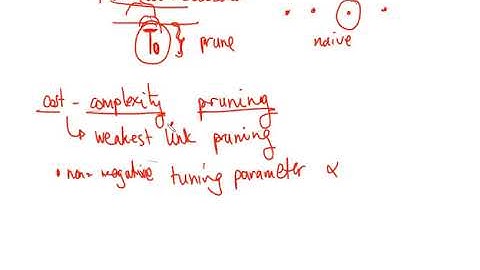 T₀ } prune
naive
cost - complexity pruning
↳ weakest link pruning
• non-negative tuning parameter α